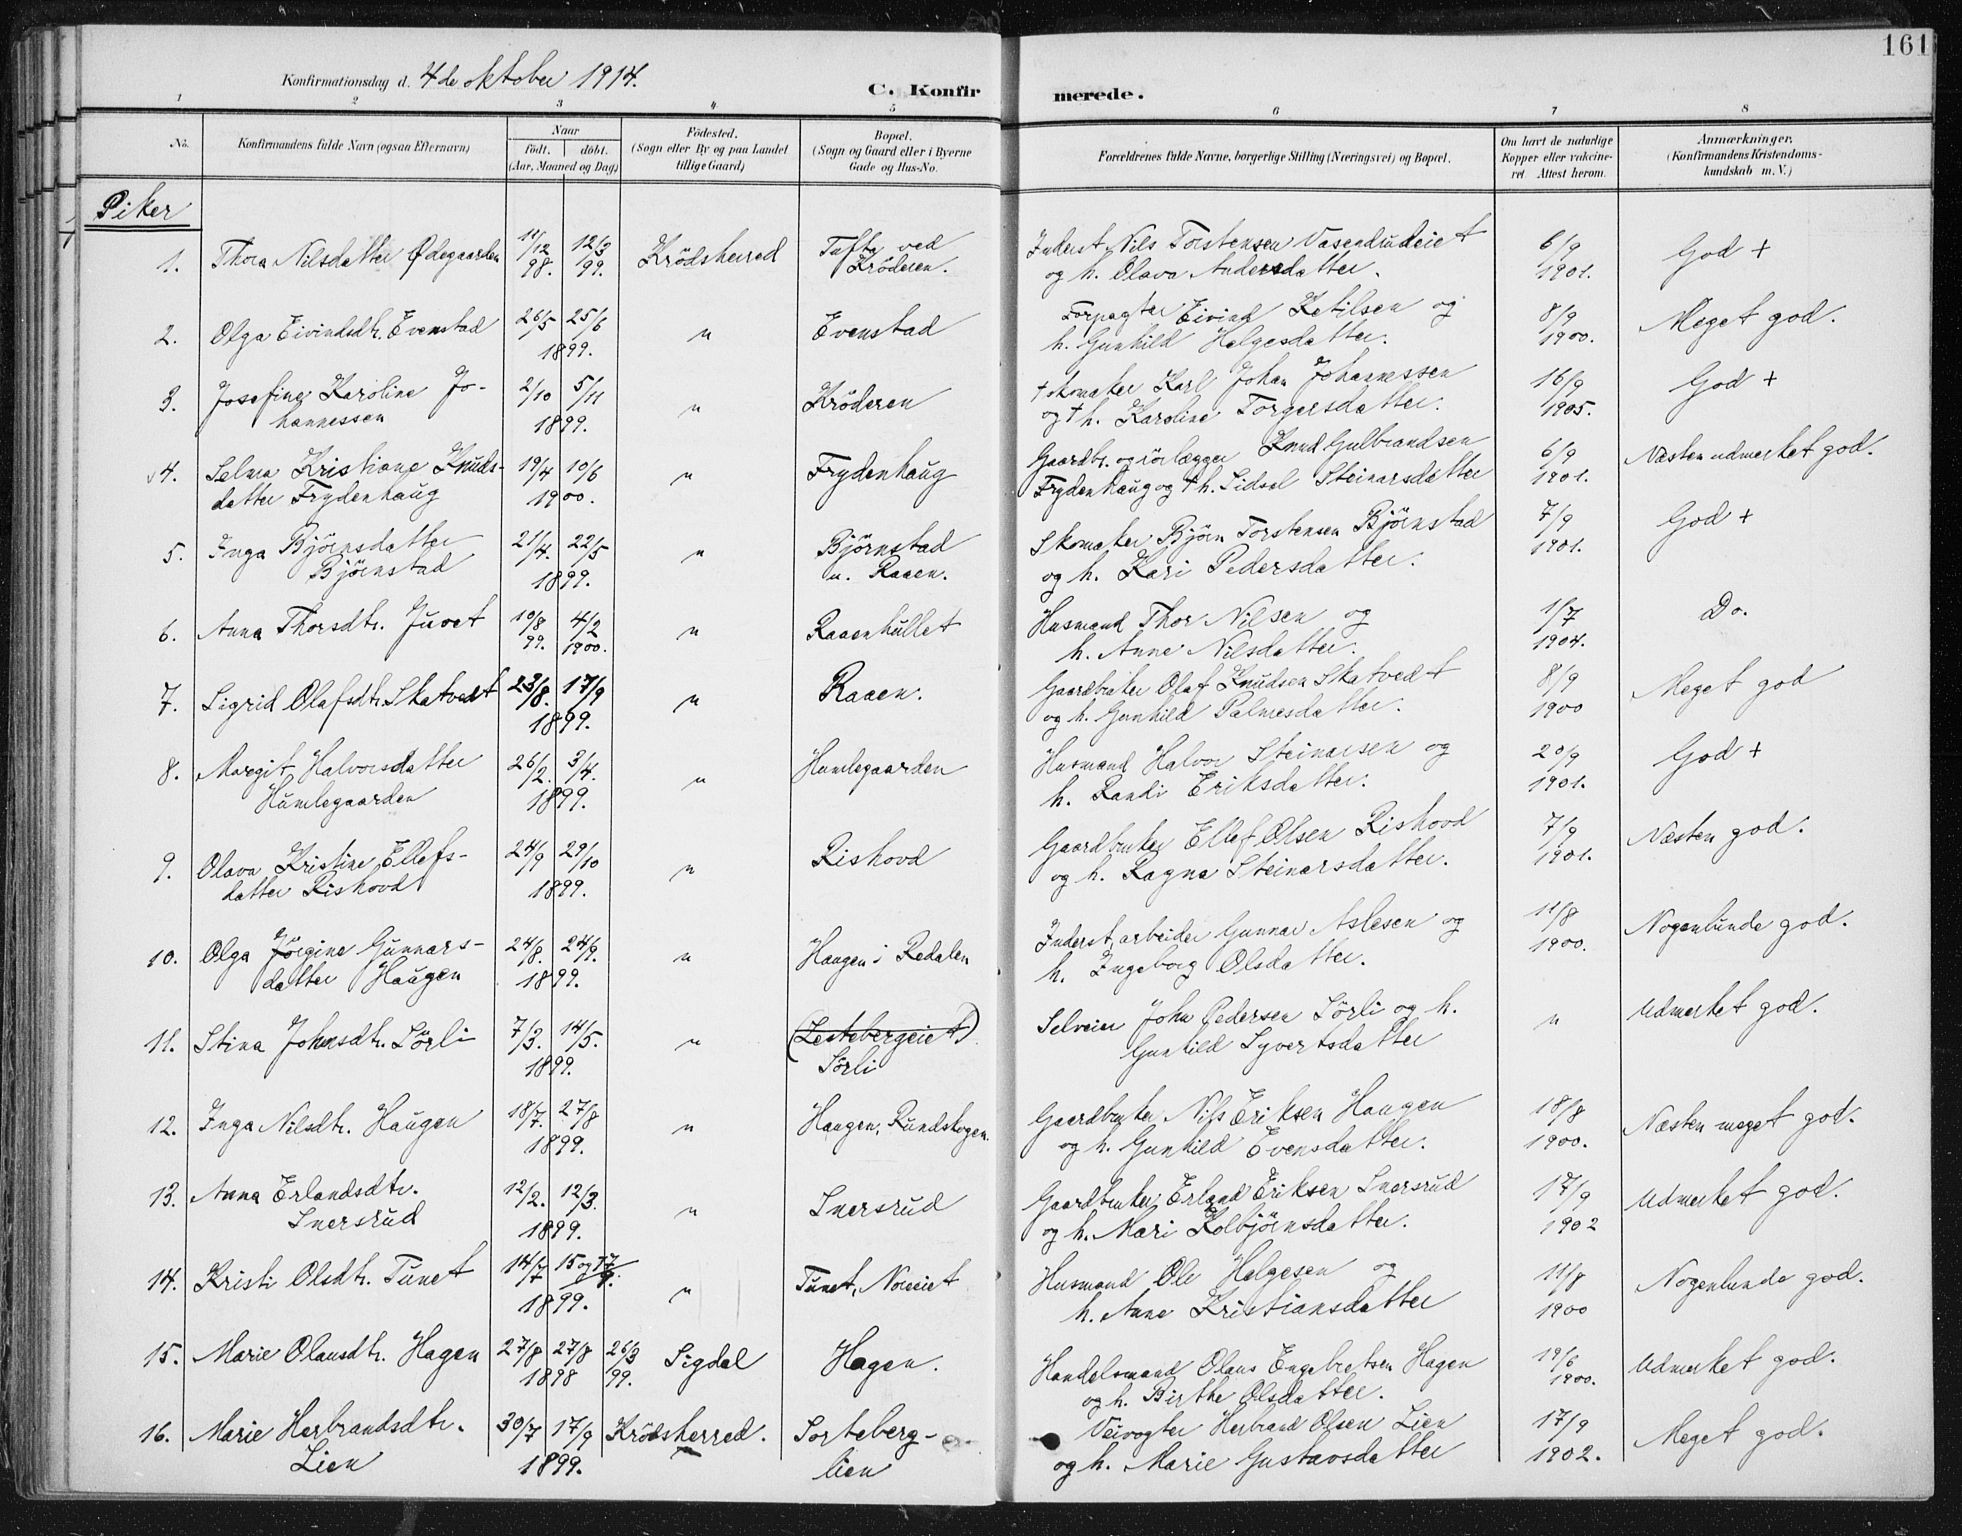 161
Konfirmationsdag d. 4de oktober 1914.
C. Konfir merede.
1 2 3 4 5 6 7 8
No. Konfirmandens fulde Navn (ogsaa Efternavn) Naar født. døbt. (Aar, Maaned og Dag) Fødested. (Sogn eller By og paa Landet tillige Gaard) Bopæl. (Sogn og Gaard eller i Byerne Gade og Hus-No. Forældrenes fulde Navne, borgerlige Stilling (Næringsvei) og Bopæl. Om havt de naturlige Kopper eller vakcineret Attest herom. Anmærkninger. (Konfirmandens Kristendomskundskab m. V.)
Piker
1. Thora Nilsdatter Ødegaarden 11/12 98. 12/3 99. Krödsherred Tufte ved Kröderen. Inderst Nils Torstensen Vasendrudeiet og h. Olava Andersdatter. 6/9 1901. God +
2. Olga Eivindsdtr. Evenstad 26/5 25/6 1899. " Evenstad Forpagter Eivind Ketilsen og h. Gunhild Helgesdatter. 8/9 1900. Meget god.
3. Josefine Karoline Jo-
hannessen 2/10 5/11 1899. " Kröderen † skomaker Karl Johan Johannessen og † h. Karoline Torgersdatter. 16/9 1905. God +
4. Selma Kristiane Knuds-
datter Frydenhaug 19/4 10/6 1900. " Frydenhaug Gaardbr. og rörlægger Knud Gulbrandsen Frydenhaug og † h. Sidsel Steinarsdatter 6/9 1901. Næsten udmerket god.
5. Inga Björnsdatter
Björnstad 21/4. 22/5 1899. " Björnstad u. Raaen. Skomaker Björn Torstensen Björnstad og h. Kari Pedersdatter. 7/9 1901. God +
6. Anna Thorsdtr. Juvet 10/8 99. 4/2 1900. " Raaenhullet Husmand Thor Nilsen og h. Anne Nilsdatter. 1/7 1904. Do.
7. Sigrid Olafsdtr. Skatvedt 23/8. 17/9 1899. " Raaen. Gaardbruker Olaf Knudsen Skatvedt og h. Gunhild Palmesdatter. 8/9 1900 Meget god
8. Margit Halvorsdatter
Humlegaarden 26/2. 3/4. 1899. " Humlegaarden Husmand Halvor Steinarsen og h. Randi Eriksdatter. 20/9 1901. God +
9. Olava Kristine Ellefs-
datter Rishovd 24/9 29/10 1899. " Rishovd Gaardbruker Ellef Olsen Rishovd og h. Ragna Steinarsdatter. 7/9 1901. Næsten god.
10. Olga Jörgine Gunnars-
datter Haugen 24/8. 24/9. 1899. " Haugen i Redalen Inderst, arbeider Gunnar Aslesen og h. Ingeborg Olsdatter. 11/8 1900. Nogenlunde god.
11. Stina Johnsdtr. Sörli 7/3. 14/5. 1899. " (Lestebergeiet) Sörli Selveier John Pedersen Sörli og h. Gunhild Syvertsdatter " Udmerket god.
12. Inga Nilsdtr. Haugen 18/7. 27/8 1899. " Haugen, Rundskogen. Gaardbruker Nils Eriksen Haugen og h. Gunhild Evensdatter. 18/8 1900. Næsten meget god.
13. Anna Erlandsdtr.
Snersrud 12/2. 12/3. 1899. " Snersrud Gaardbruker Erland Eriksen Snersrud og h. Mari Kolbjörnsdatter. 17/9 1902 Udmerket god.
14. Kristi Olsdtr. Tunet 14/7 15 og 17/9. 1899. " Tunet, Noreiet Husmand Ole Helgesen og h. Anne Kristiansdatter 11/8 1900 Nogenlunde god.
15. Marie Olausdtr. Hagen 27/8 27/8 1898 26/3 99. Sigdal Hagen. Handelsmand Olaus Engebretsen Hagen og h. Birthe Olsdatter. 19/6 1900. Udmerket god.
16. Marie Herbrandsdtr.
Lien 30/7 17/9 1899. Krödsherred. Sorteberg-
lien Veivogter Herbrand Olsen Lien og h. Marie Gustavsdatter 17/9 1902. Meget god.